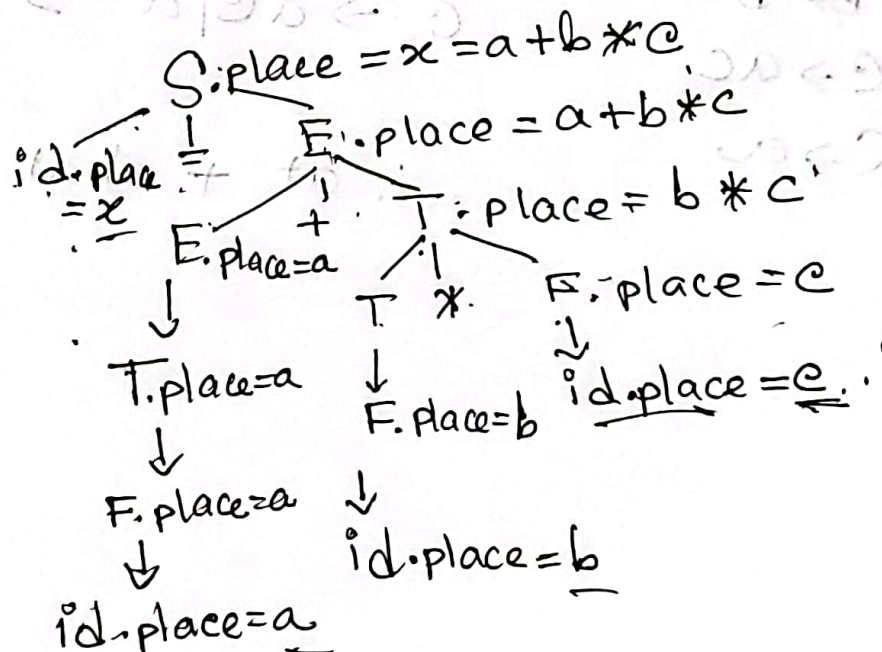 S.place = x = a + b * c
id.place = E.place = a + b * c
= x + T.place = b * c
E.place=a
T * F.place = c
T.place=a
F.place=b id.place = c
F.place=a
id.place = b
id.place=a